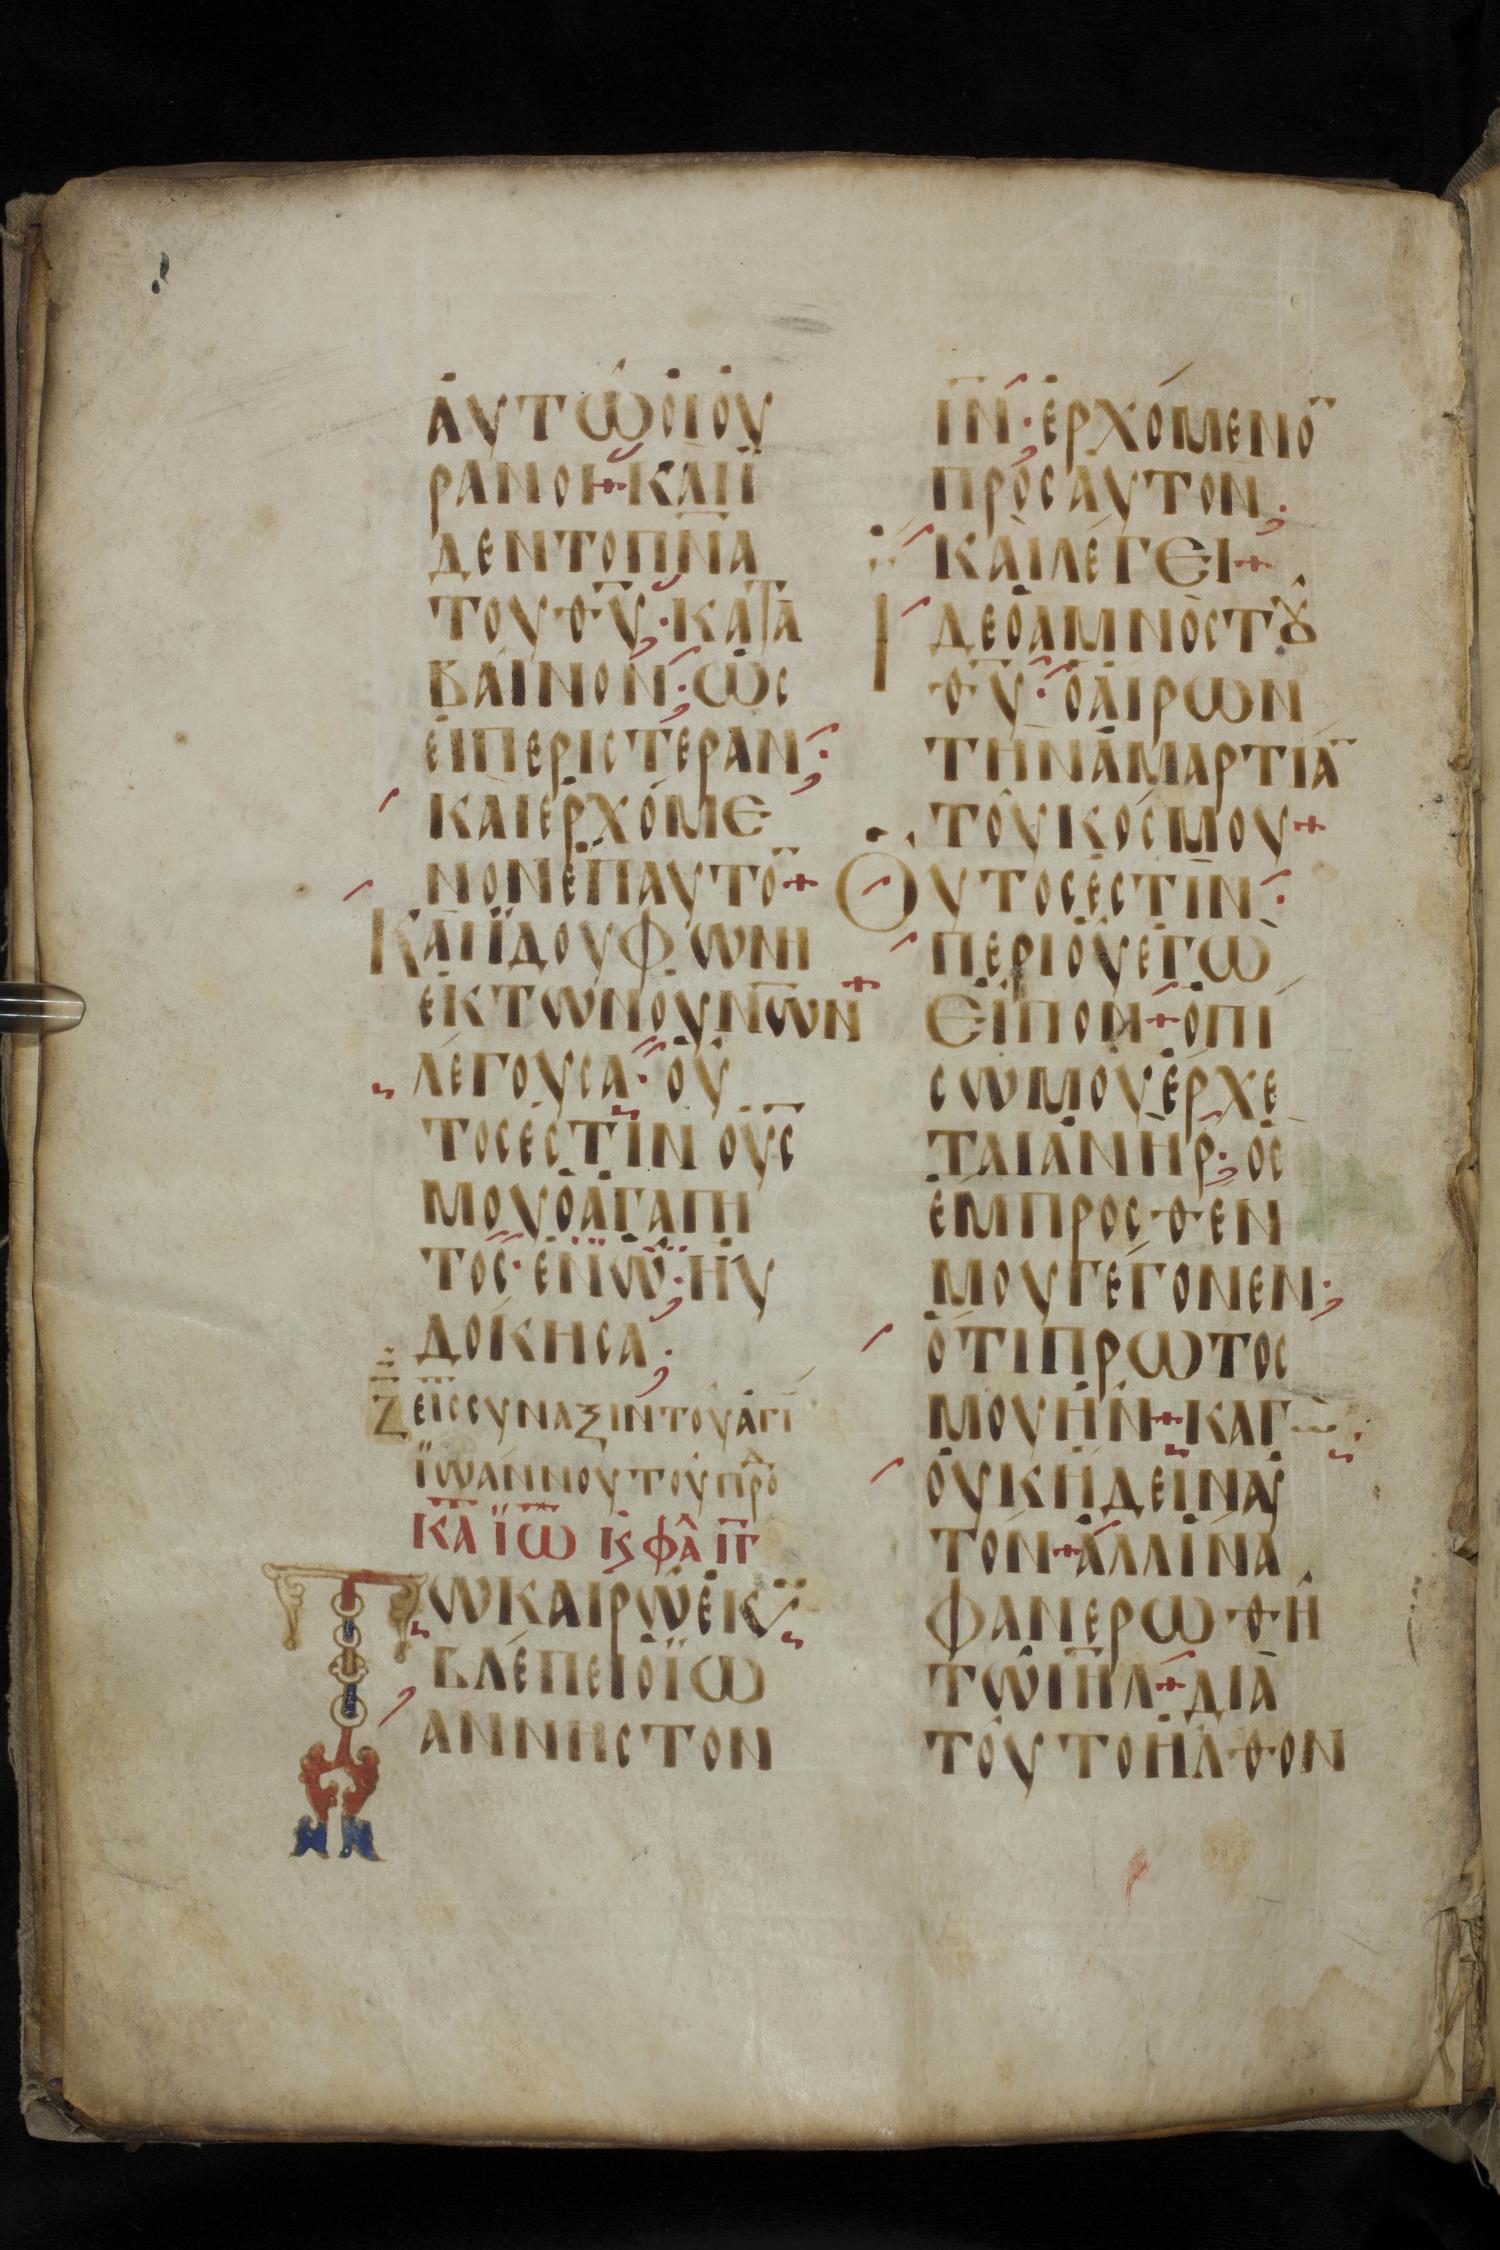 ἀυτῶὁιὁυ
ρανοι + και ἴ
δεντοπν̅α
τουθ̅υ · κατὰ
βαῖνον · ὡς
εἰπεριστεράν ·
καιερχόμε
νονἐπαυτο̅ +
Καὶ ἰδουφωνὴ
ἐκτῶνου̅ν̅ω̅ν̅ +
λέγουσα · οὗ
τοςἐστιν ὁυ̅ς̅
μουὁἀγαπη
τος · ἐνῶ · ηὐ
δόκησα ·
ζ εἰςσυναξιντοῦἁγί
ἰωάννουτοῦπρο
κα ἰω κ̅ς̅ φα ιγ
Τωκαιρῶἐκ
βλέπειὁϊω
αννηςτον
ι̅ν̅ · ἐρχόμενο̅
πρὸςἀυτον ·
καιλέγει +
Ιδεὁἀμνὸςτȣ
θ̅υ̅ · ὁἄιρων
τηνἁμαρτία̅
τοῦκόσμου +
Ουτοςἐστιν ·
περιοὗεγὼ
εἶπον + ὀπί
σωμουἔρχε
ταιἀνηρ · ὃς
ἔμπροσθεν
μουγέγονεν ·
ὅτιπρῶτος
μουἦν + καγὼ
οὐκηδειναυ
τον + ἀλλἵνα
φανερωθῆ
τῶι̅η̅λ̅ + διὰ
τοῦτοἦλθον